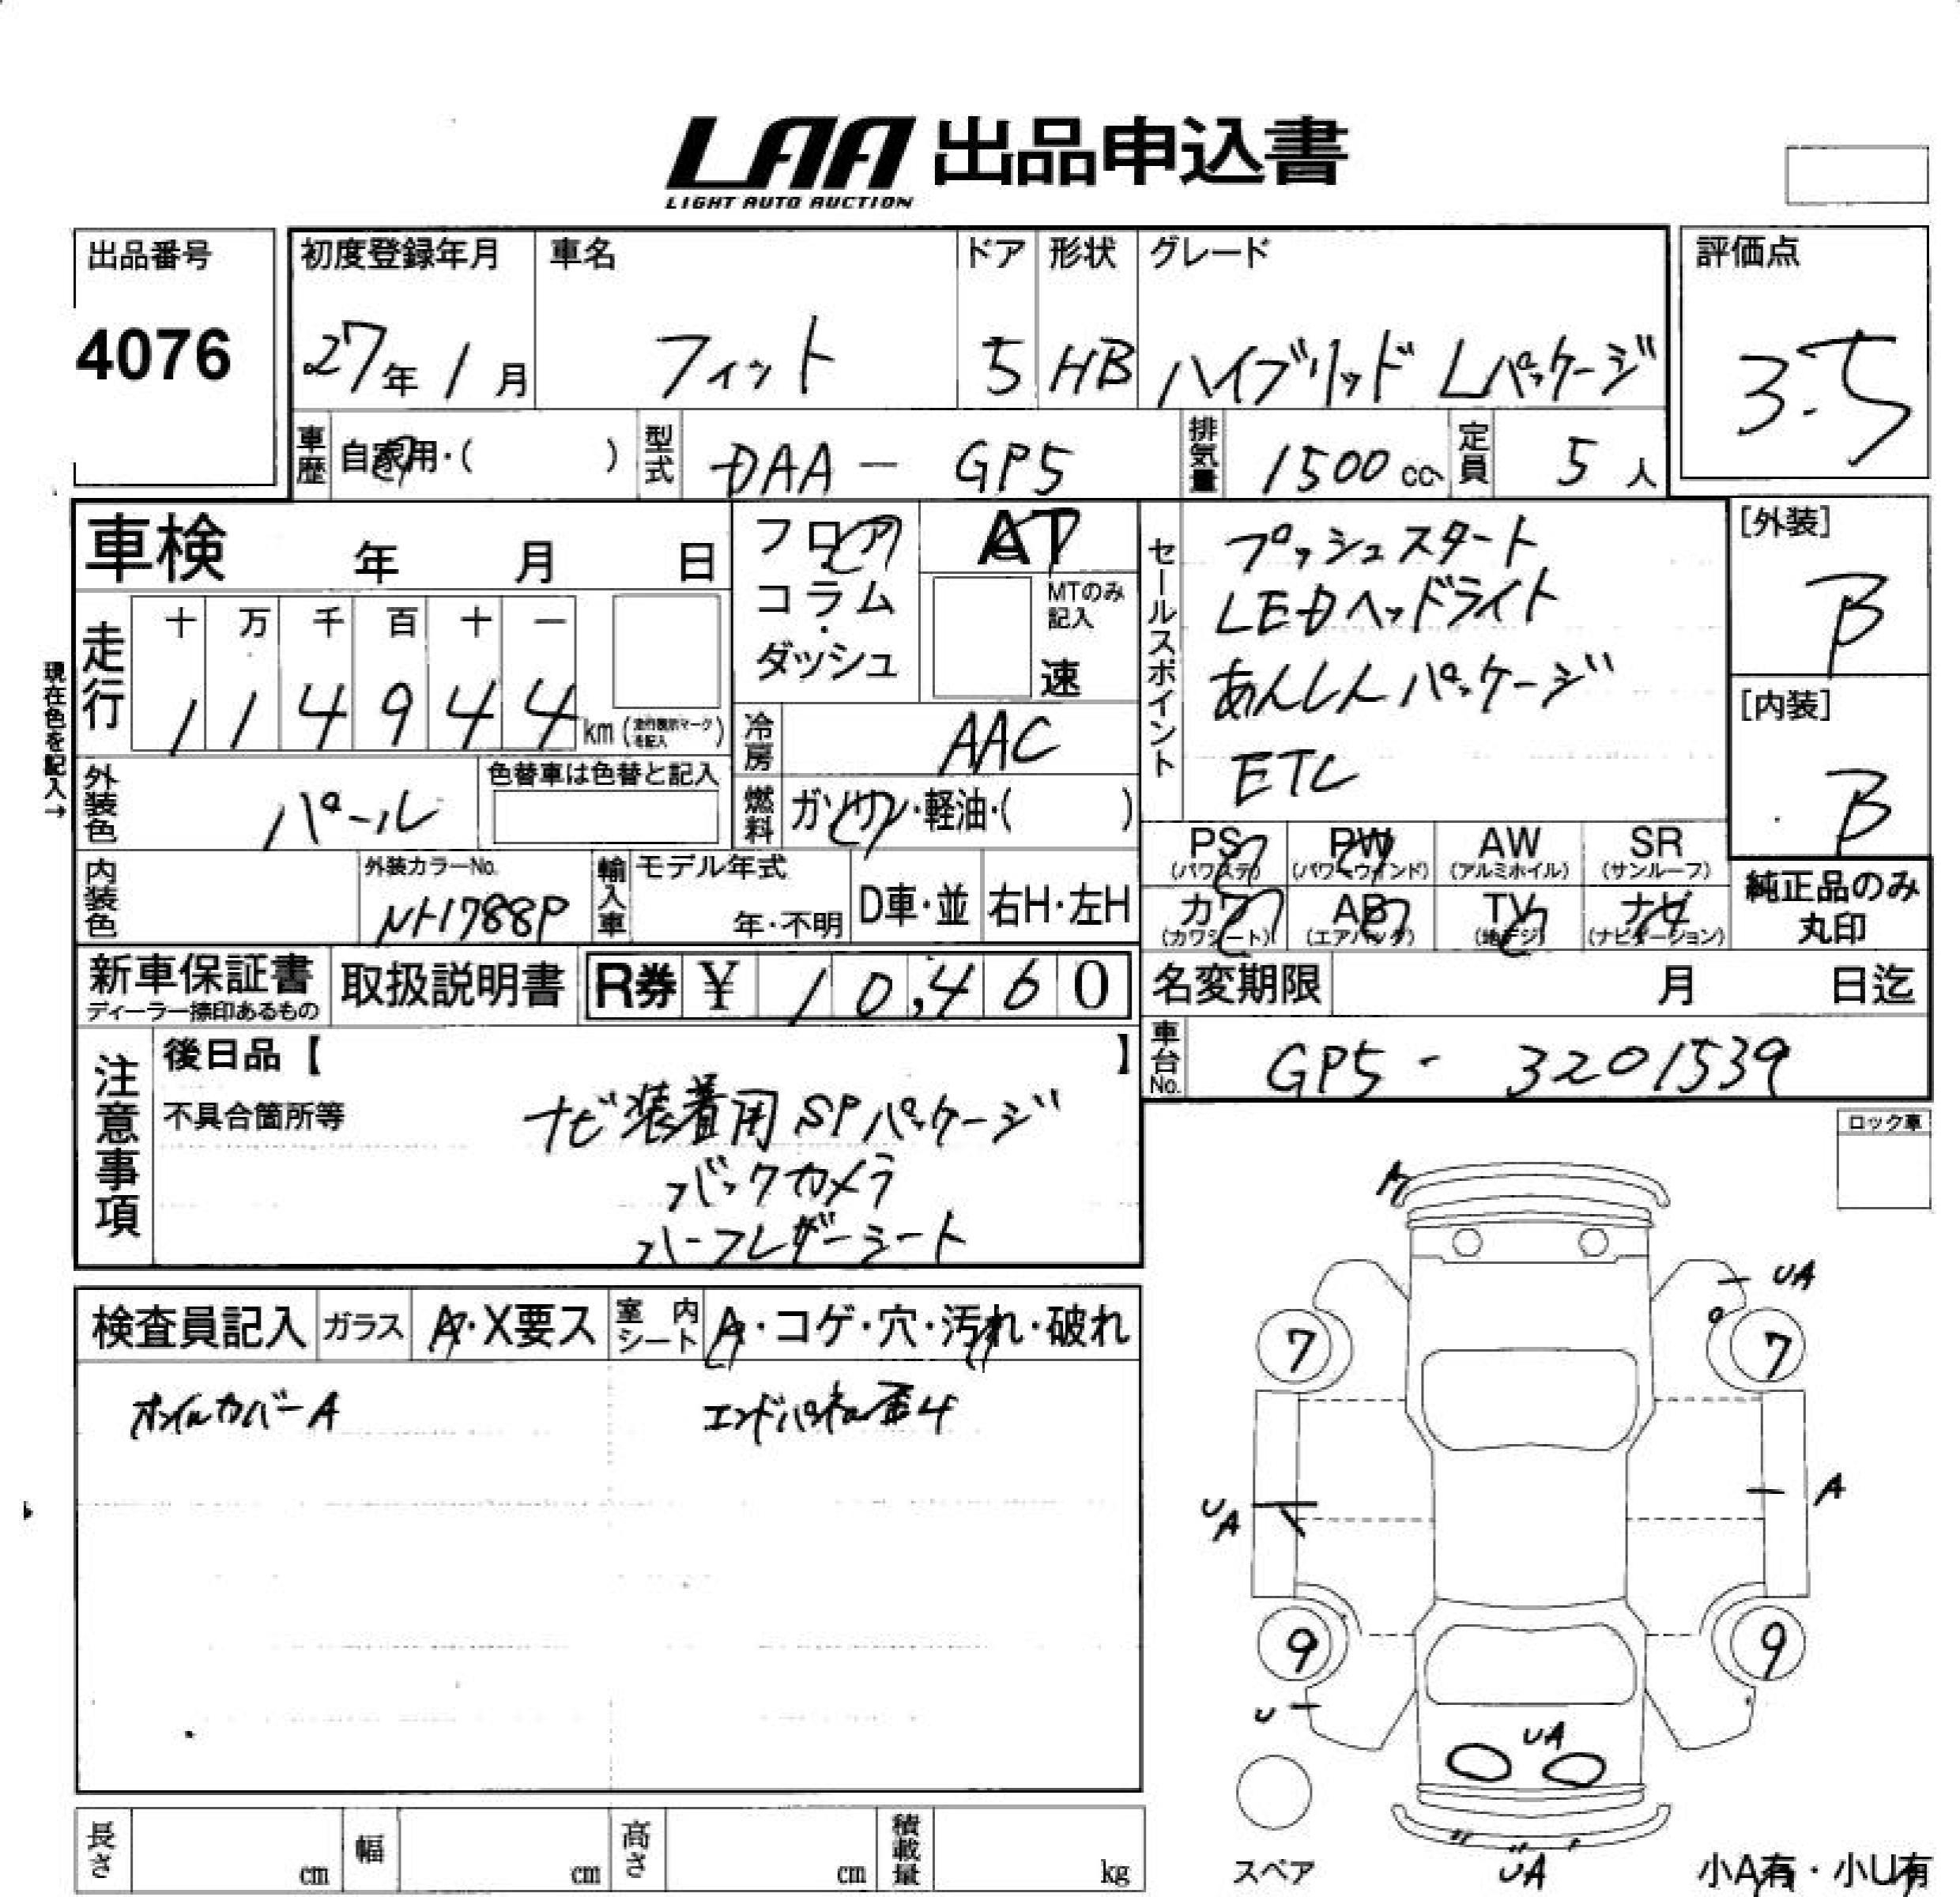 LAA 出品申込書
LIGHT AUTO AUCTION
出品番号
4076
初度登録年月 車名 ドア 形状 グレード
27年 1月 フィット 5 HB ハイブリッド Lパッケージ
評価点
3.5
車歴 自家用・( ) 型式 DAA - GP5 排気量 1500 cc 定員 5 人
車検 年 月 日
フロア
コラム
・
ダッシュ
AT
MTのみ
記入
速
セールスポイント
プッシュスタート
LEDヘッドライト
あんしんパッケージ
ETC
[外装]
B
[内装]
B
現在色を記入→
走行
十 万 千 百 十 一
1 1 4 9 4 4 km (走行表示マークを記入)
冷房 AAC
外装色 パール
色替車は色替と記入
燃料 ガソリン・軽油・( )
内装色
外装カラーNo.
NH788P
輸入車 モデル年式
年・不明 D車・並 右H・左H
PS PW AW SR
(パワステ) (パワーウインド) (アルミホイル) (サンルーフ)
カワ AB TV ナビ
(カワシート) (エアバック) (地デジ) (ナビゲーション)
純正品のみ
丸印
新車保証書
ディーラー捺印あるもの
取扱説明書
R券 ¥ 10,460
名変期限 月 日迄
車台No. GP5 - 3201539
注意事項
後日品【 】
不具合箇所等
ナビ装着用SPパッケージ
バックカメラ
ハーフレザーシート
ロック車
検査員記入 ガラス A・X要ス 室内シート A・コゲ・穴・汚れ・破れ
オイルカバーA エンドパネル歪4
A
UA
7 7
UA A
9 9
U
UA
スペア
UA
小A有・小U有
長さ cm 幅 cm 高さ cm 積載量 kg